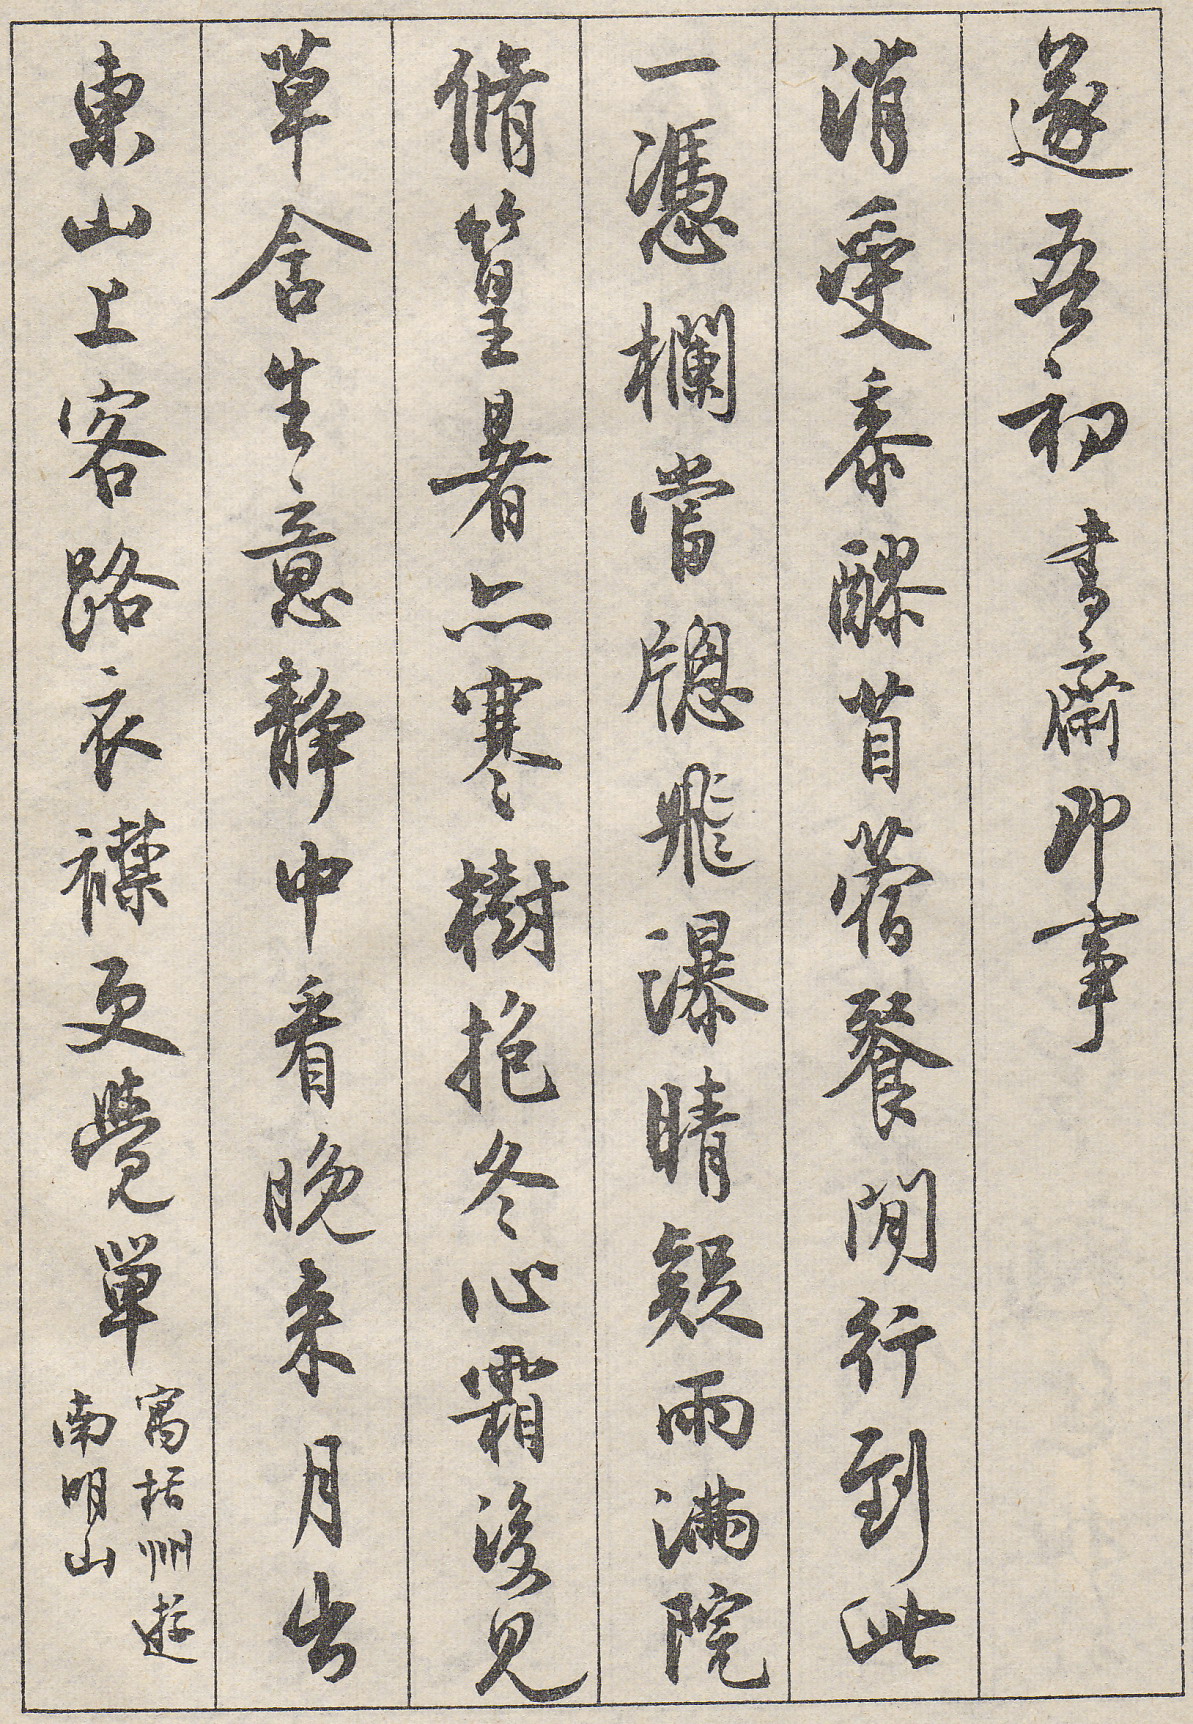 遂吾初書齋即事
消受黍醪苜蓿餐閒行到此
一憑欄當牕飛瀑晴疑雨滿院
脩篁暑亦寒樹抱冬心霜後見
草含生意静中看晚来月出
東山上客路衣襟更覺單
寓括州遊
南明山